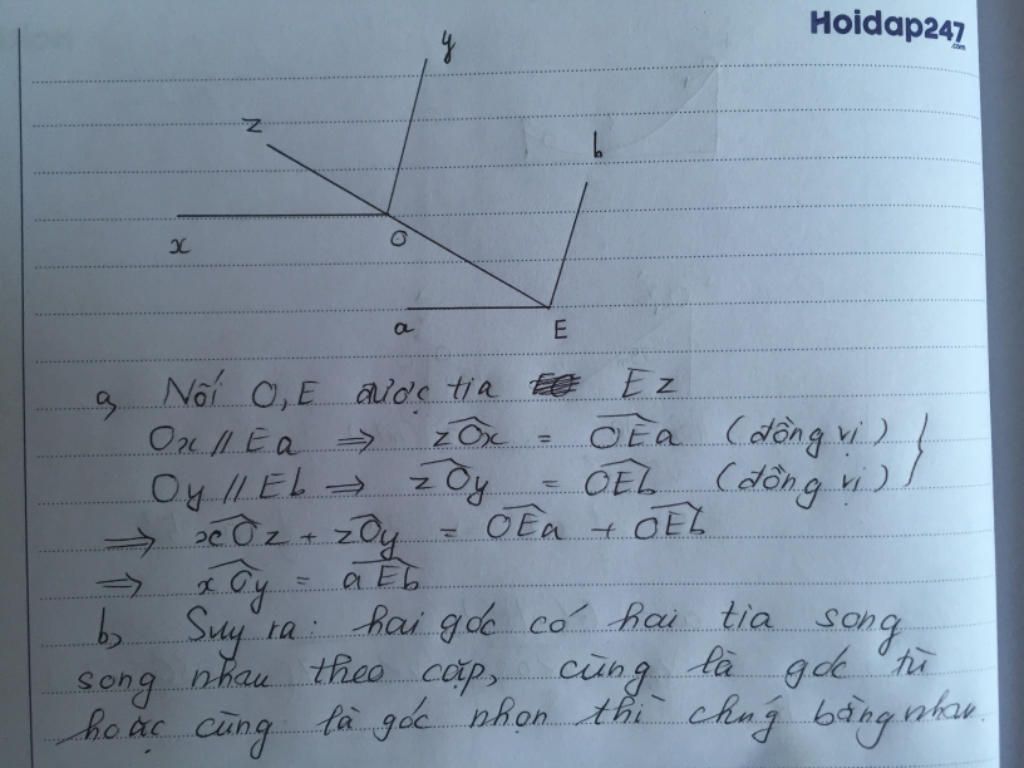 Hoidap247
.com
y
z
b
x
O
a
E
a, Nối O, E được tia Ez
Ox // Ea ⇒ zOx = OEa (đồng vị)
Oy // Eb ⇒ zOy = OEb (đồng vị)
⇒ xOz + zOy = OEa + OEb
⇒ xOy = aEb
b, Suy ra: hai góc có hai tia song
song nhau theo cặp, cùng là góc tù
hoặc cùng là góc nhọn thì chúng bằng nhau.